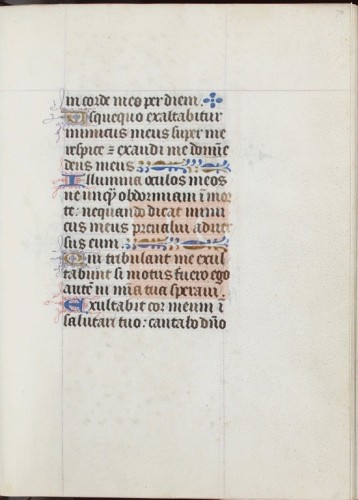 in corde meo per diem.
Usquequo exaltabitur
inimicus meus super me
respice ⁊ exaudi me domine
deus meus
Illumina oculos meos
ne unqͣ obdormiam ĩ mor
te: nequando dicat inimi
cus meus preualui aduer
sus eum.
Qui tribulant me exul
tabunt si motus fuero ego
autẽ in mĩa tua speraui.
Exultabit cor meum ĩ
salutari tuo: cantabo dño